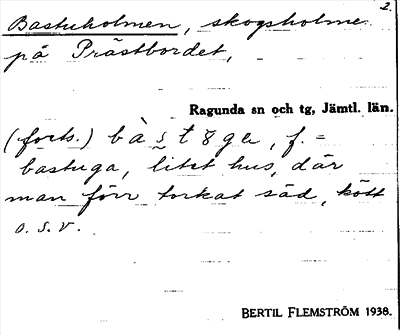 2.
Bastuholmen, skogsholme
på Prästbordet,
Ragunda sn och tg, Jämtl. län.
(forts.) f. =
bastuga, litet hus, där
man förr torkat säd, kött
o.s.v.
BERTIL FLEMSTRÖM 1938.